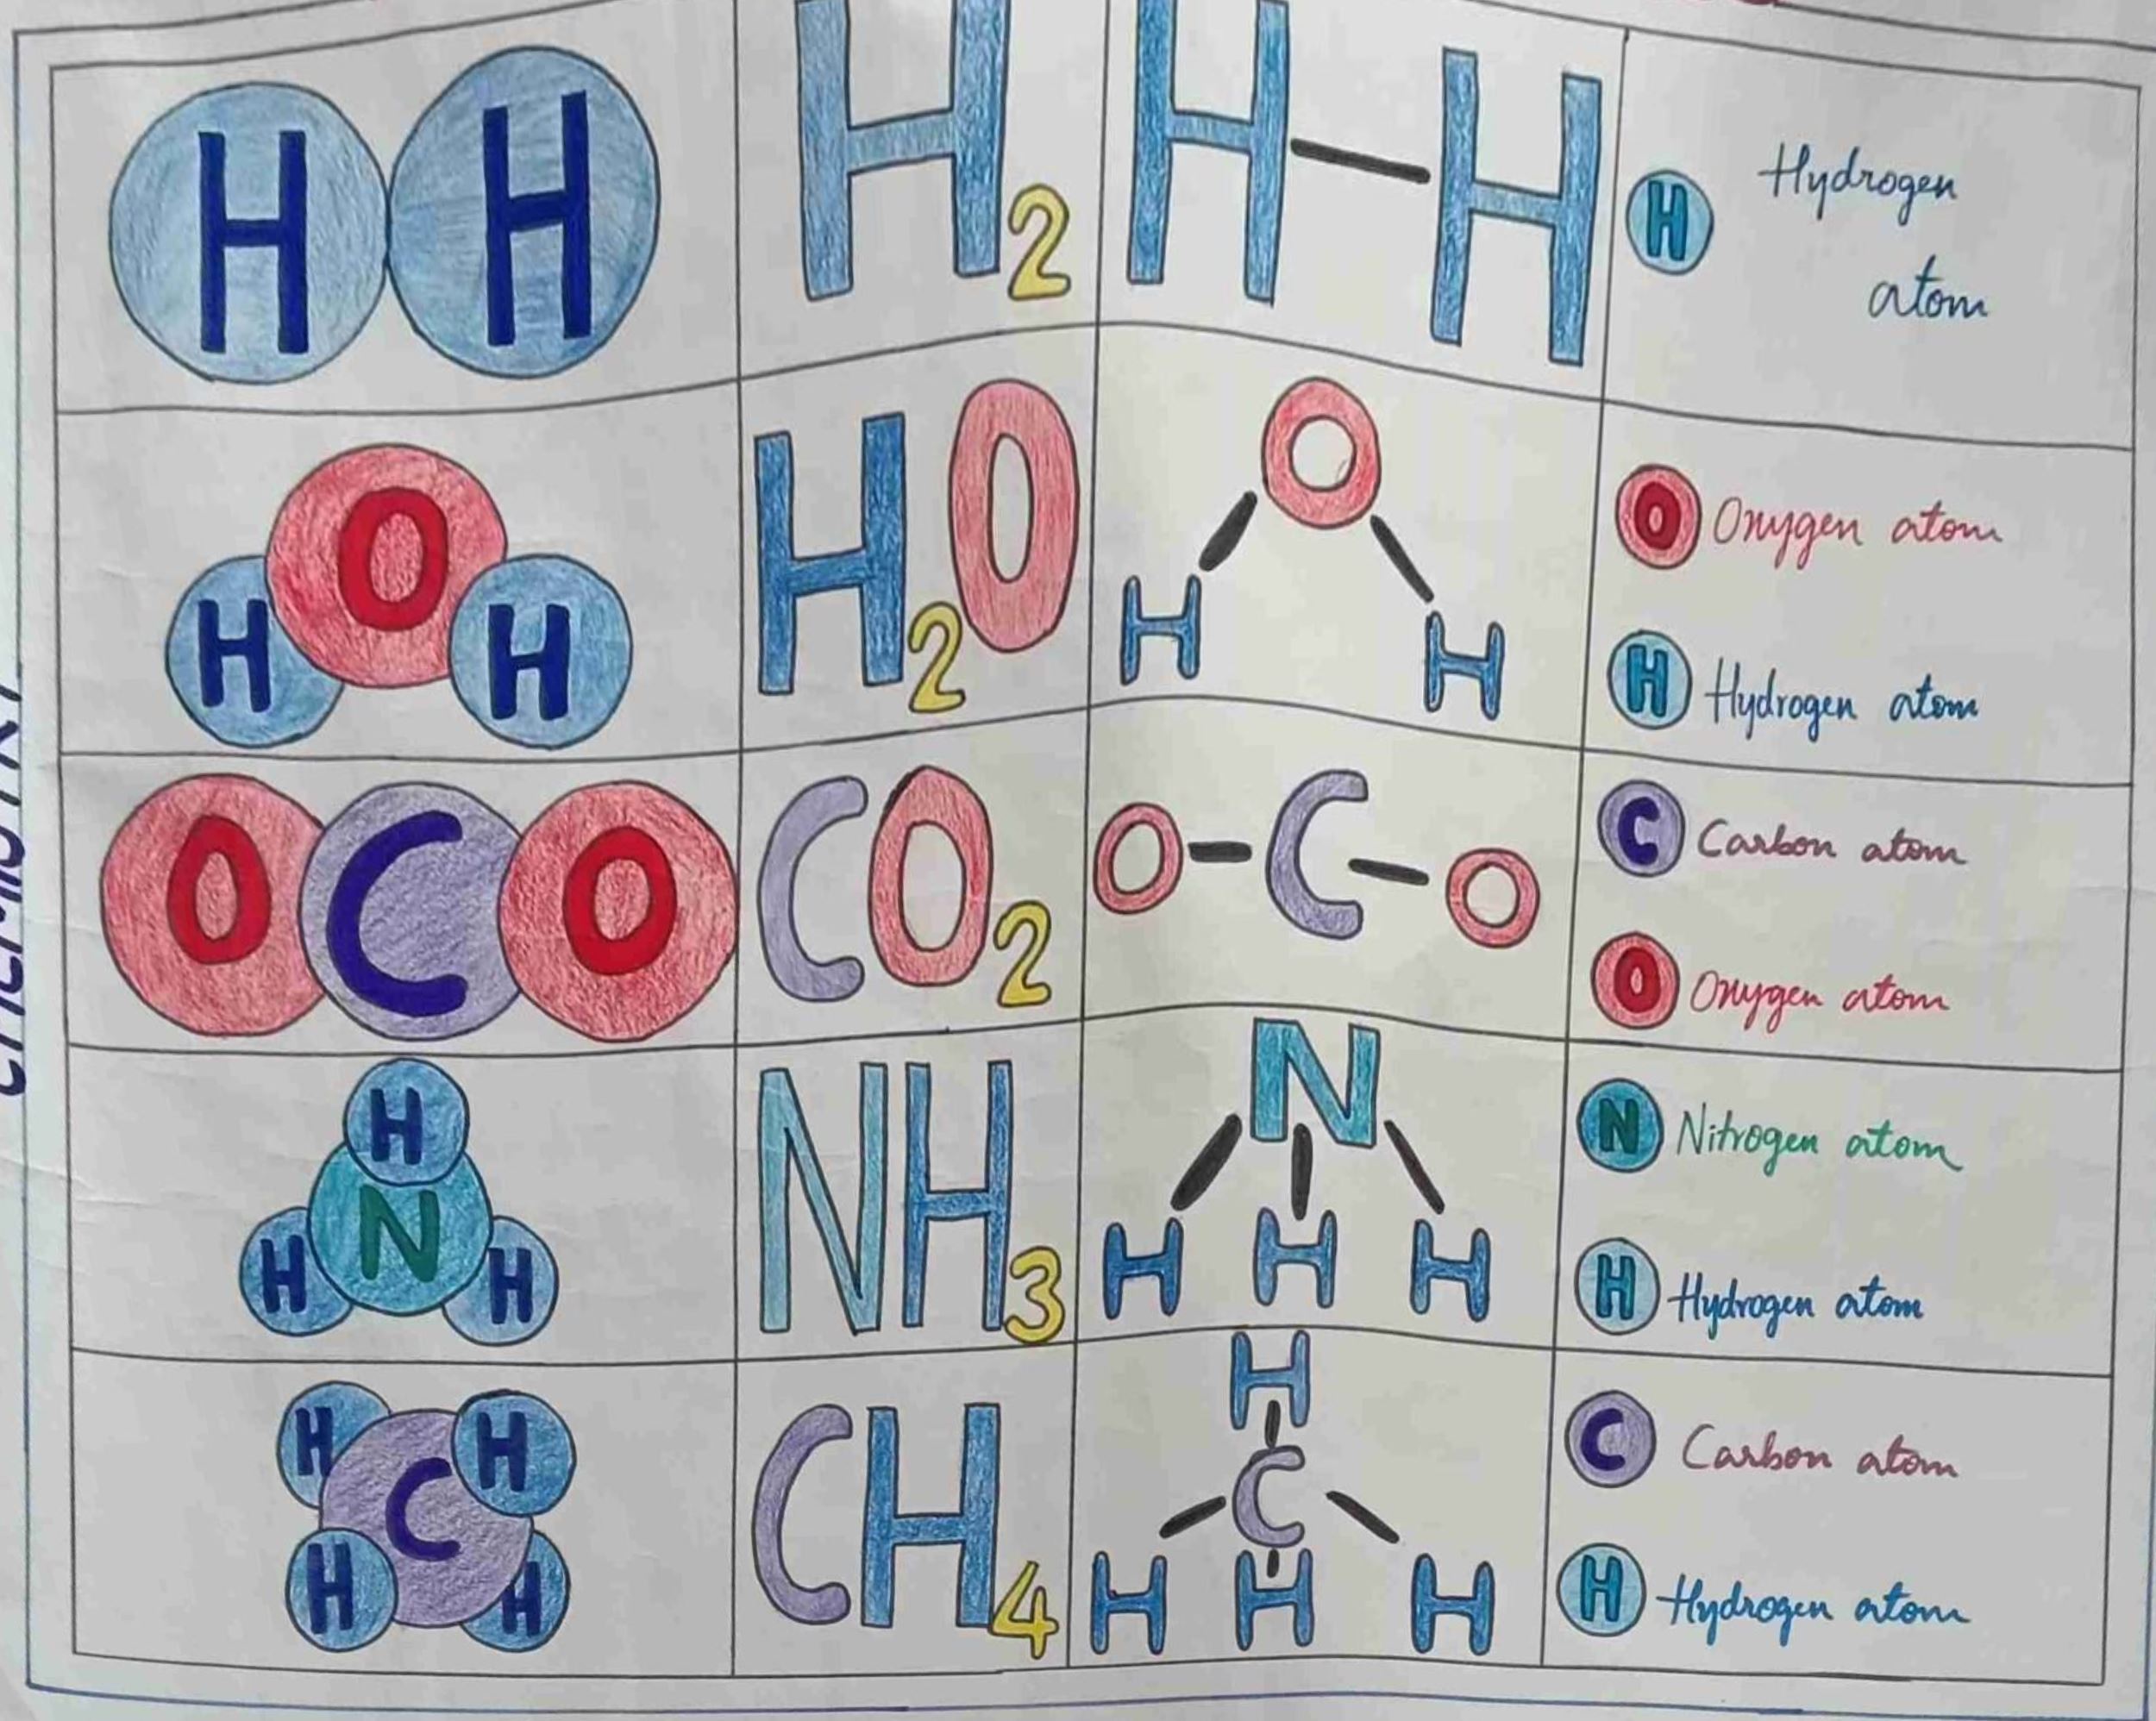 H H
H2
H-H
H Hydrogen
atom
O
H H
H2O
O
H H
O Oxygen atom
H Hydrogen atom
O C O
CO2
O-C-O
C Carbon atom
O Oxygen atom
H
N
H H
NH3
N
H H H
N Nitrogen atom
H Hydrogen atom
H H
C
H H
CH4
H
C
H H H
C Carbon atom
H Hydrogen atom